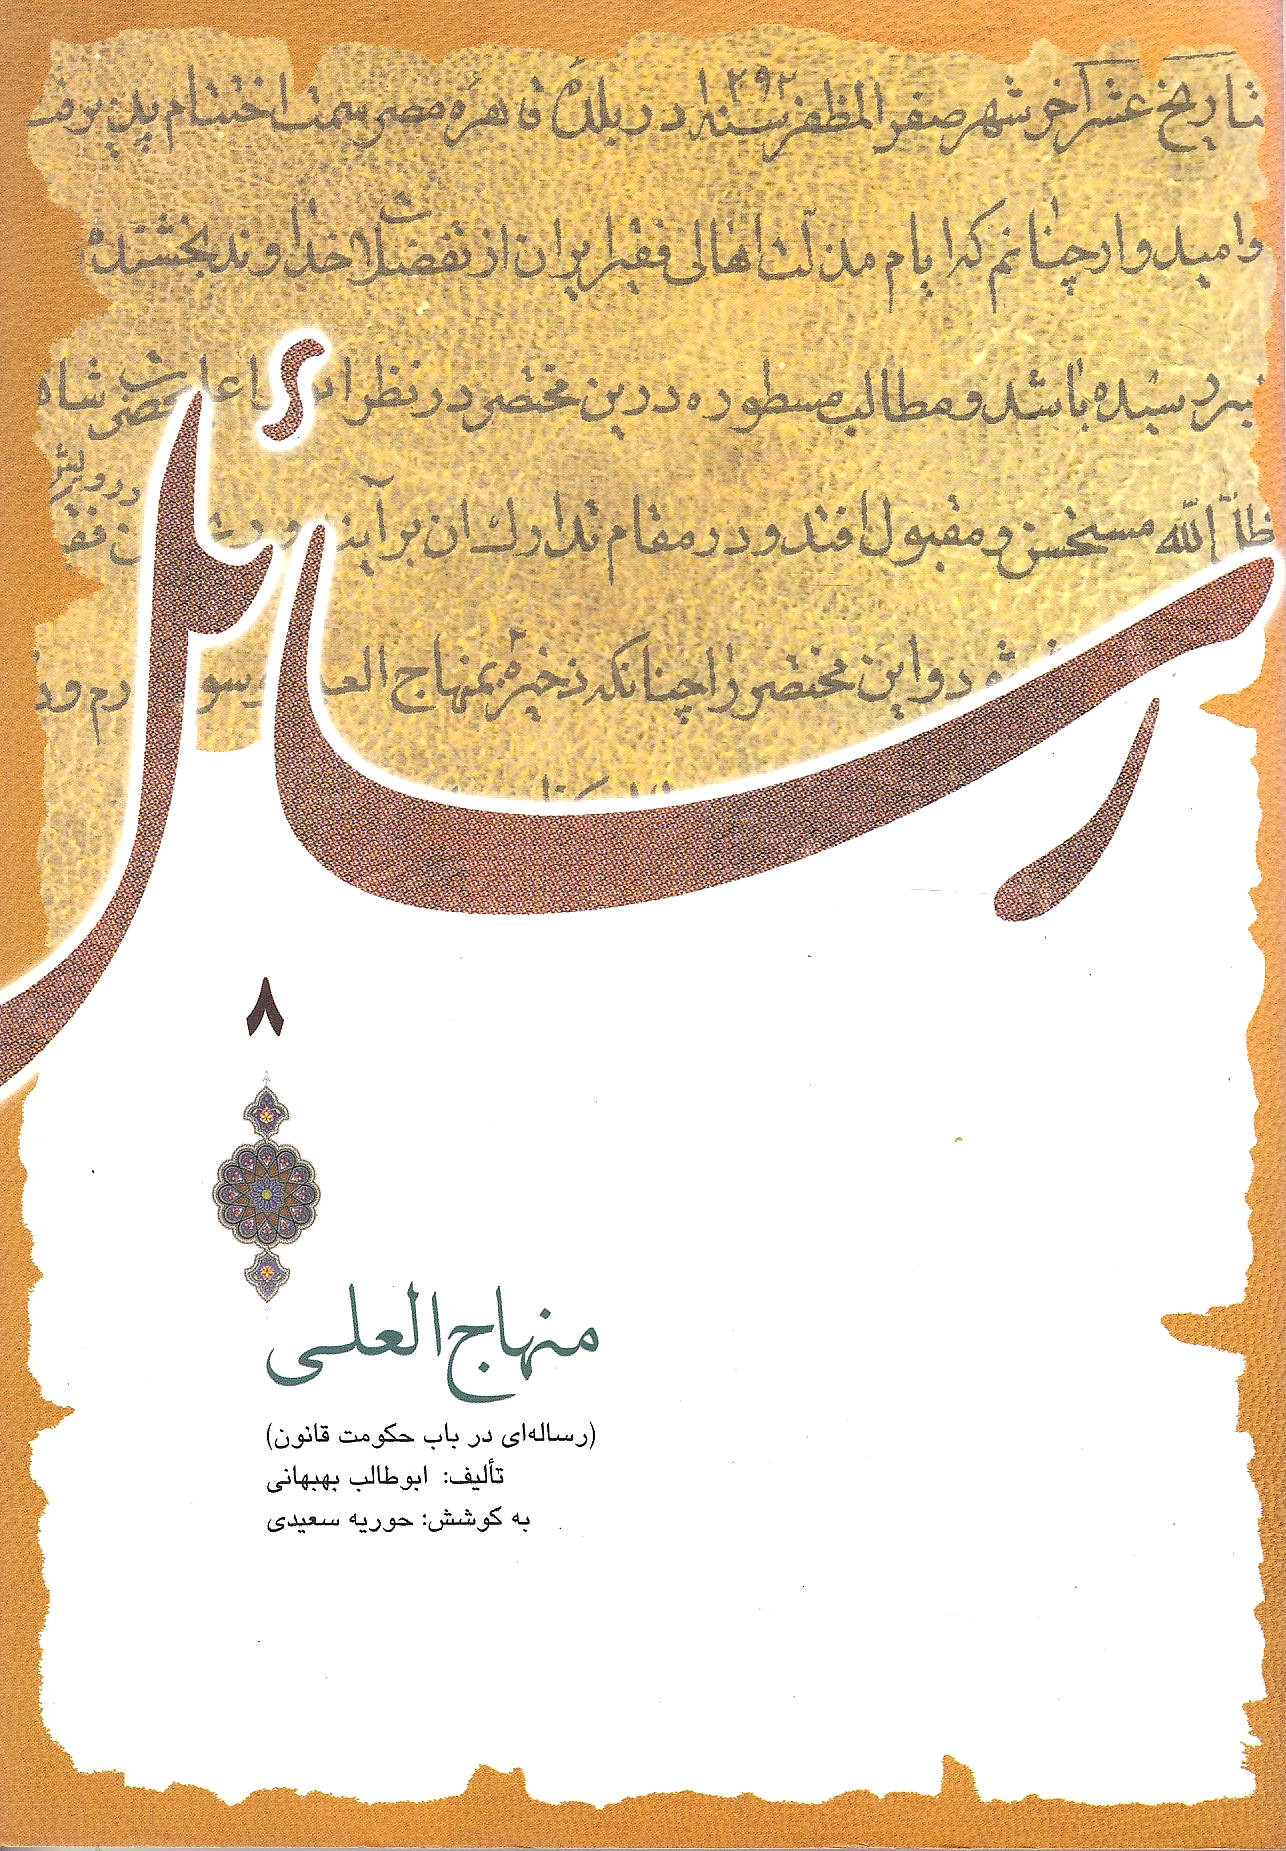 تاریخ عشر آخر شهر صفر المظفر سنه ۱۲۹۲ در بلدهٔ قاهرهٔ مصر سمت اختتام پذیرفت
وامیدوار چنانم که ایام مذلت اهالی فقیر ایران از تفضلات خداوند بخشنده
رسیده باشد و مطالب مسطوره درین مختصر در نظر اعلیحضرت شاه
درویش
ظل الله مستحسن و مقبول افتد و در مقام تدارک ان برآیند و
و این مختصر را چنانکه ذخیره بمنهاج
رسائل
۸
منهاج العلی
(رساله‌ای در باب حکومت قانون)
تألیف: ابوطالب بهبهانی
به کوشش: حوریه سعیدی